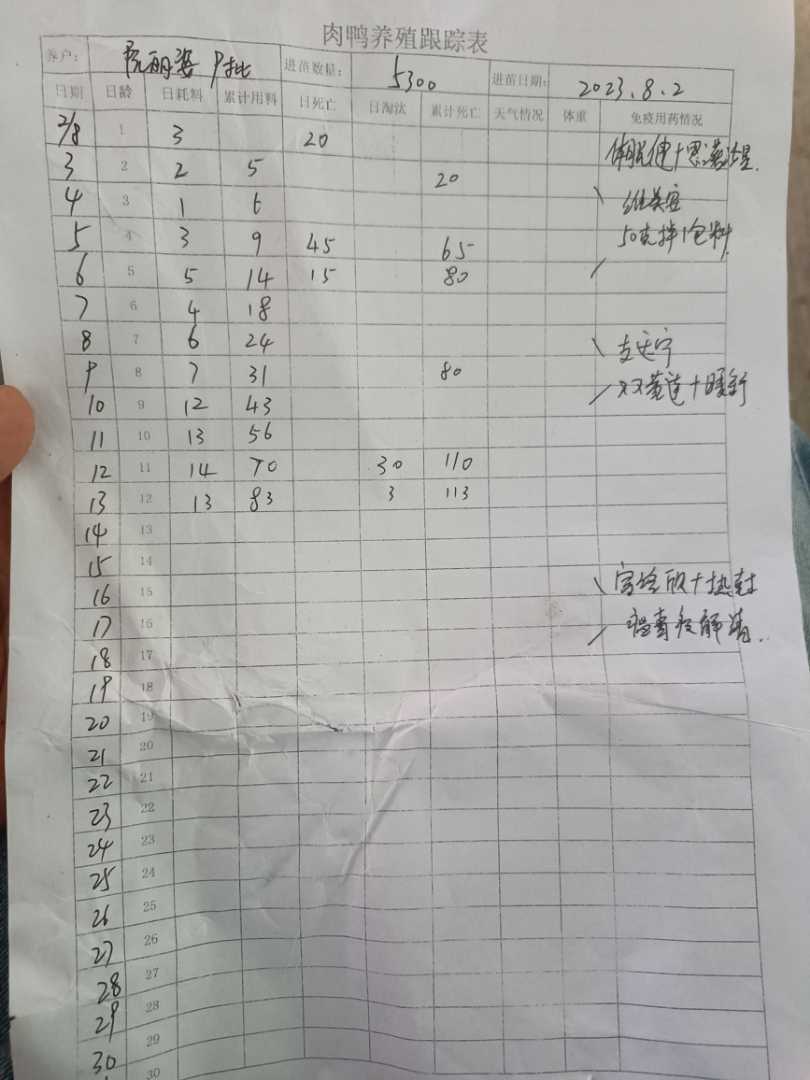 肉鸭养殖跟踪表
养户: 阮丽姿 9批 进苗数量: 5300 进苗日期: 2023.8.2
日期 日龄 日耗料 累计用料 日死亡 日淘汰 累计死亡 天气情况 体重 免疫用药情况
2/8 1 3 20
3 2 2 5 20
4 3 1 6
5 4 3 9 45 65 50克拌1包料
6 5 5 14 15 80
7 6 4 18
8 7 6 24
9 8 7 31 80 双黄连+
10 9 12 43
11 10 13 56
12 11 14 70 30 110
13 12 13 83 3 113
14 13
15 14
16 15
17 16
18 17
19 18
20 19
21 20
22 21
23 22
24 23
25 24
26 25
27 26
28 27
29 28
30 29
30